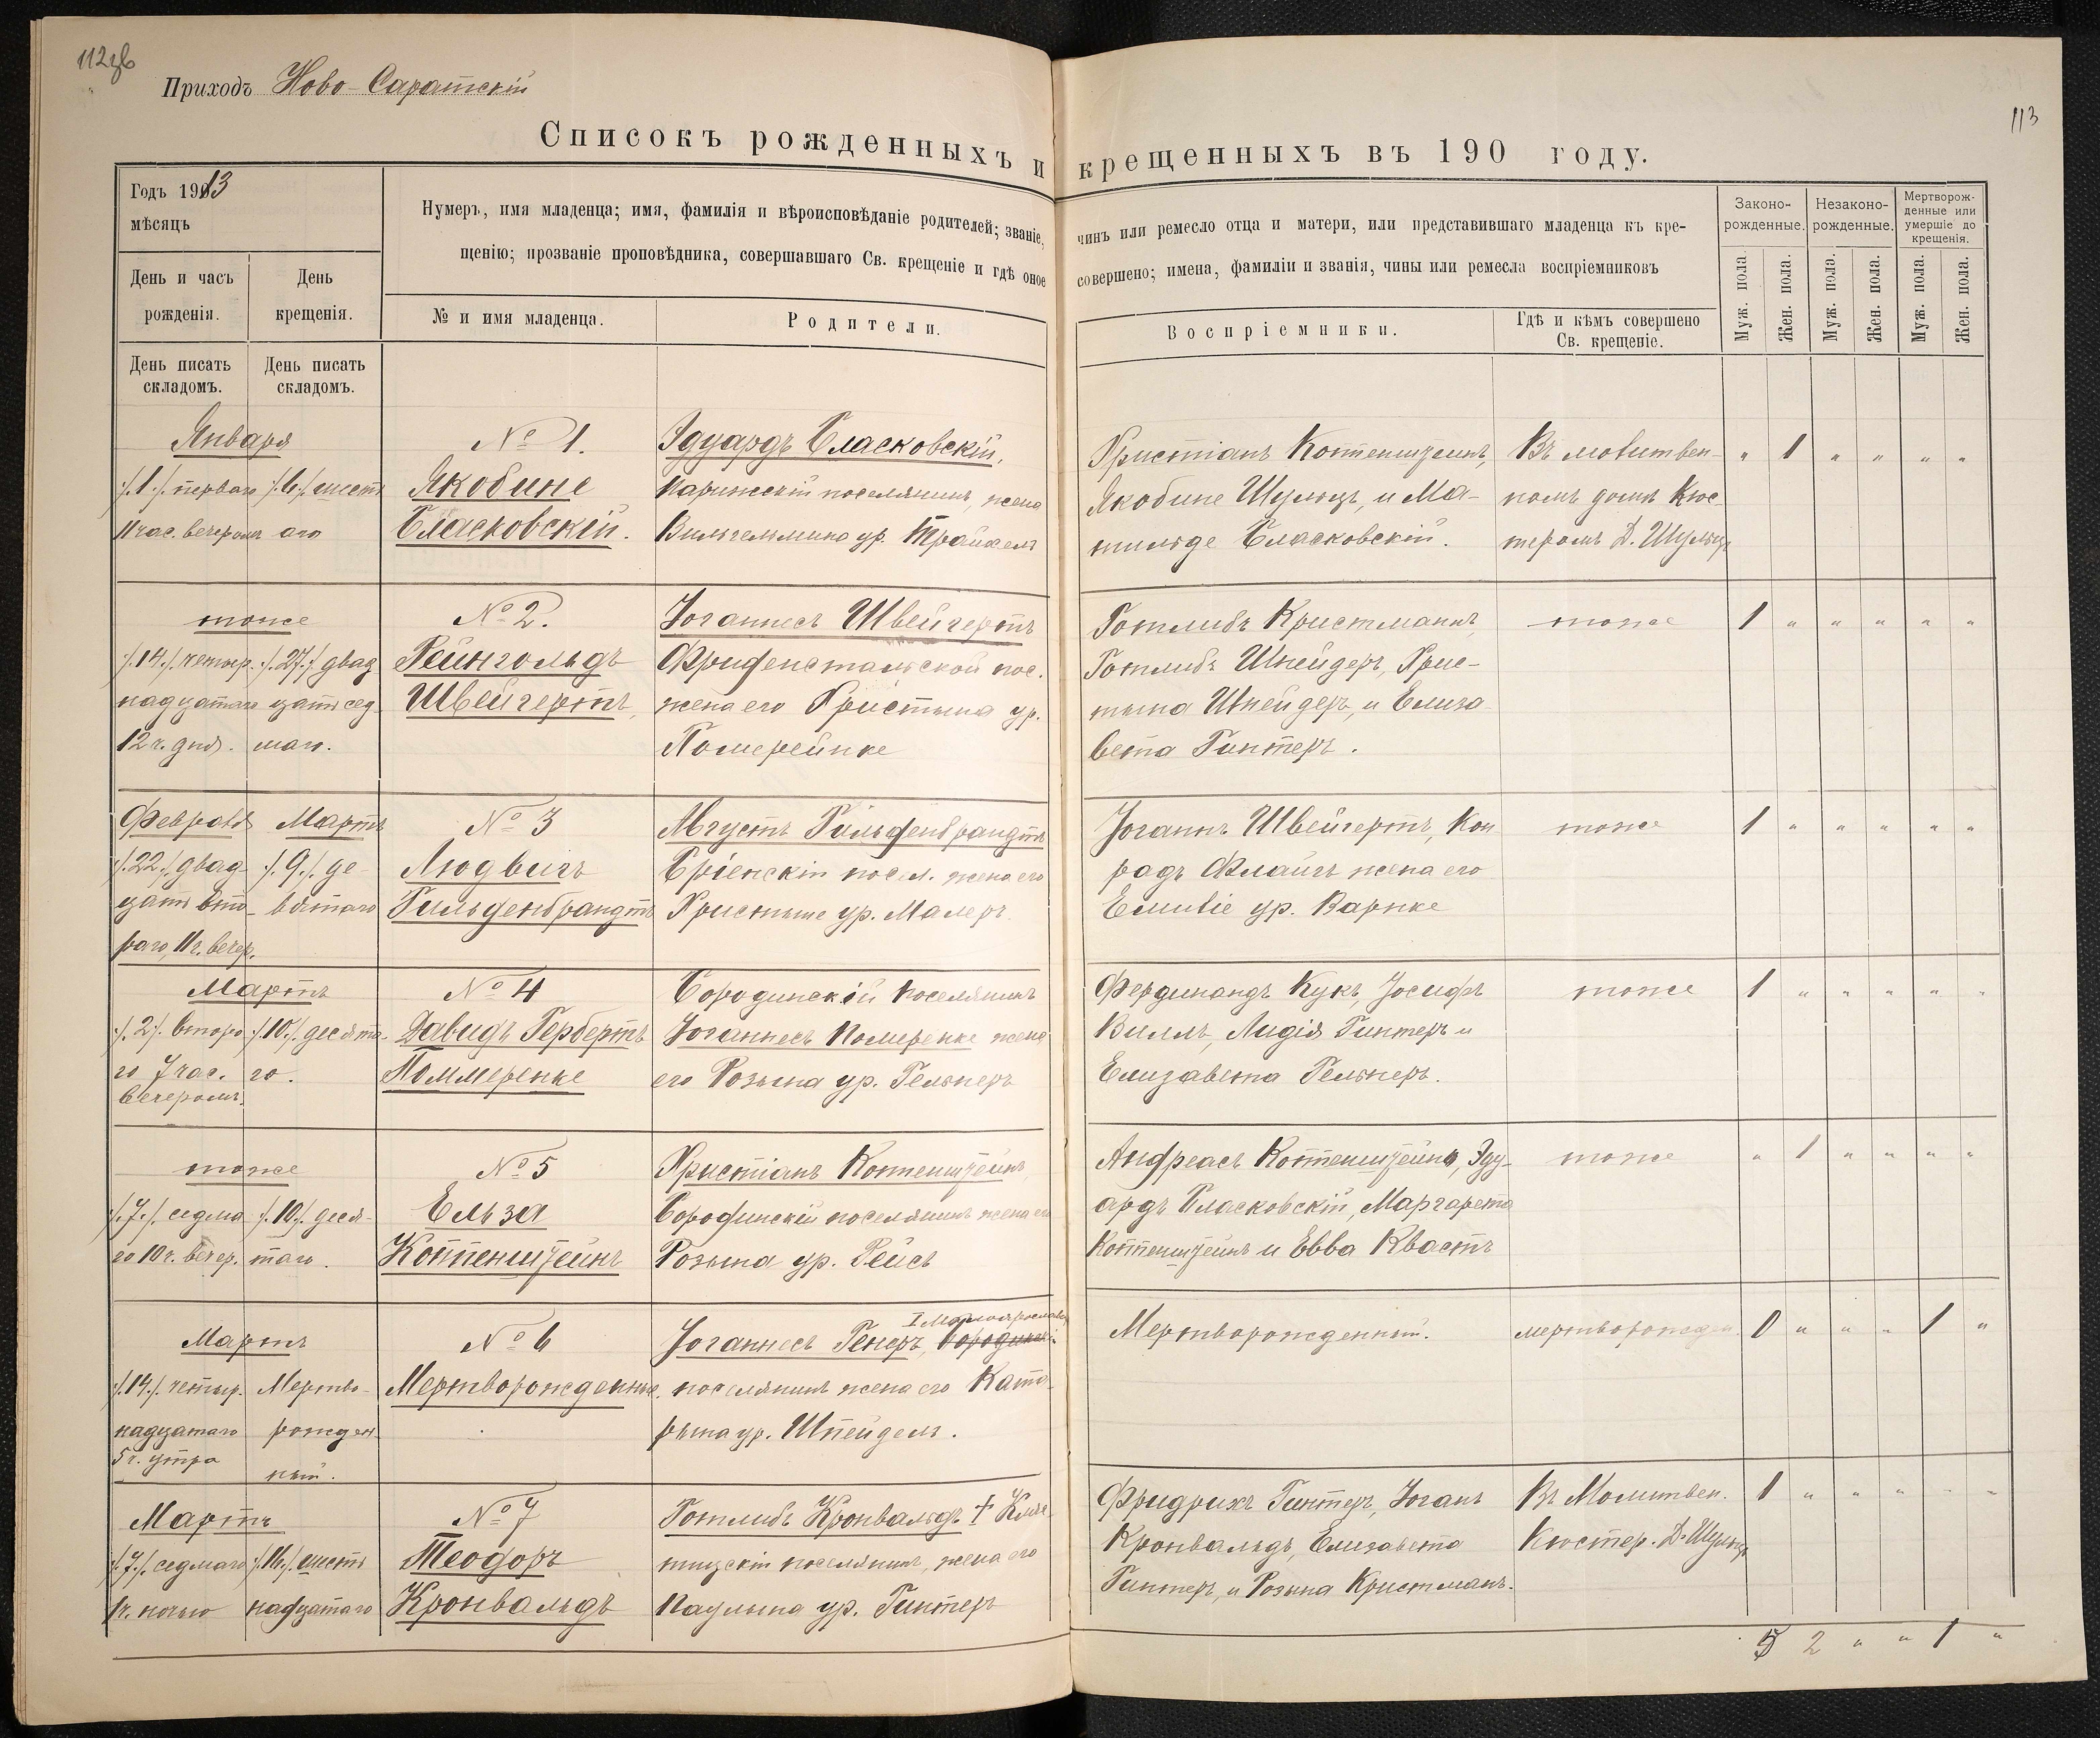 112зв
Приходъ Ново-Саратскій
113
Списокъ рожденныхъ и крещенныхъ въ 190 году.
Годъ 1913
мѣсяцъ
Нумеръ, имя младенца; имя, фамилія и вѣроисповѣданіе родителей; званіе, чинъ или ремесло отца и матери, или представившаго младенца къ кре-
щенію; прозваніе проповѣдника, совершавшаго Св. крещеніе и гдѣ оное совершено; имена, фамиліи и званія, чины или ремесла воспріемниковъ
Законо-
рожденные.
Незаконо-
рожденные.
Мертворож-
денные или
умершіе до
крещенія.
День и часъ
рожденія.
День
крещенія.
№ и имя младенца.
Родители.
Воспріемники.
Гдѣ и кѣмъ совершено
Св. крещеніе.
Муж. пола.
Жен. пола.
Муж. пола.
Жен. пола.
Муж. пола.
Жен. пола.
День писать
складомъ.
День писать
складомъ.
Января
/.1./ перваго
11 час. вечеромъ
/.6./ шест
аго
№ 1.
Якобине
Бласковскій.
Эдуардъ Бласковскій,
поселянинъ, жена
Вильгельмина ур.
Христіанъ Коттенштеинъ,
Якобине Шульцъ, и Ма-
тильде Бласковскій.
Въ молитвен-
номъ домѣ Кюс-
теромъ Д. Шульцъ
" 1 " " " "
тоже
/.14./ четыр-
надцатаго
12 ч. дня.
/.27./ двад
цать сед-
маго.
№ 2.
Рейнгольдъ
Швейгертъ,
Іоганнесъ Швейгертъ
Фриденстальской пос.
жена его Христина ур.
Померейнке
Готлибъ Кристманнъ,
Готлибъ Шнейдеръ, Хрис-
тина Шнейдеръ, и Елиза
вета Гинтеръ.
тоже
1 " " " " "
Февраля
/.22./ двад-
цать вто-
раго, 11 ч. вечер.
Мартъ
/.9./ де-
вятаго
№ 3
Людвигъ
Гильденбрандтъ
Августъ Гильденбрандтъ
Бріенскій посел. жена его
Христине ур. Малеръ.
Іоганнъ Швейгертъ, Кон
радъ Флаигъ жена его
Емиліе ур. Варнке
тоже
1 " " " " "
Мартъ
/.2./. второ
го 7 час.
вечеромъ.
/.10./ десята-
го.
№ 4
Давидъ Гербертъ
Поммеренке
Бородинскій поселянинъ
Іоганнесъ Помиренке жена
его Розина ур. Гельнеръ
Фердинандъ Кукъ, Іосифъ
Виллъ, Лидія Гинтеръ и
Елизавета Гельнеръ.
тоже
1 " " " " "
тоже
/.7./. седма
го 10 ч. вечер.
/.10./. деся-
таго.
№ 5
Ельза
Коттенштейнъ
Христіанъ Коттенштейнъ,
Бородинскій поселянинъ жена его
Розина ур. Рейсъ
Андреасъ Коттенштейнъ, Эду-
ардъ Бласковскій, Маргарета
Коттенштейнъ и Евва Квастъ
тоже
" 1 " " " "
Мартъ
/.14./. четыр.
надцатаго
5 ч. утра
Мертво-
рожден
ный.
№ 6
Мертворожденные.
Іоганнесъ Генеръ,
поселянинъ жена его Ката-
рина ур. Шпейдель.
Мертворожденный.
мертворожден.
0 " " " 1 "
Мартъ
/.7./. седмаго
1 ч. ночью
/.16./ шест
надцатаго
№ 7
Теодоръ
Кронвальдъ
Готлибъ Кронвальдъ + Кляс
тицскій поселянинъ, жена его
Паулина ур. Гинтеръ
Фридрихъ Гинтеръ, Іоганъ
Кронвальдъ, Елизавета
Гинтеръ, и Розина Кристманъ.
Въ Молитвен.
Кюстер. Д. Шульцъ
1 " " " " "
5 2 " " 1 "